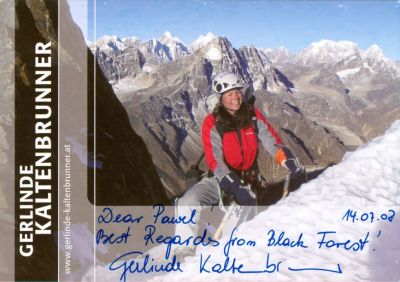 GERLINDE
KALTENBRUNNER
www.gerlinde-kaltenbrunner.at
Dear Pawel!
14.07.08
Best Regards from Black Forest!
Gerlinde Kaltenbr